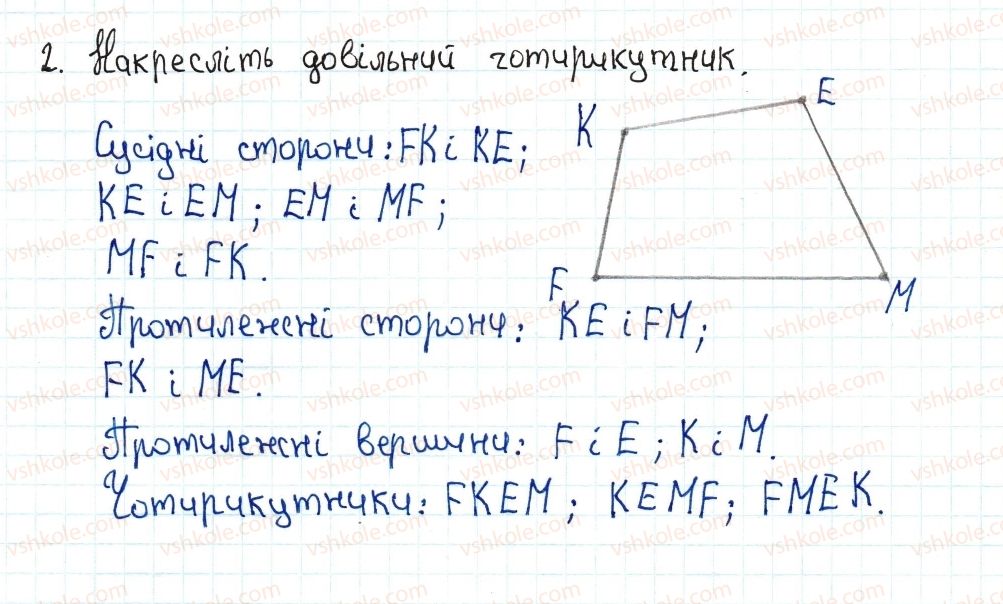 2. Накресліть довільний чотирикутник.
K
E
Сусідні сторони: FK і KE;
KE і EM; EM і MF;
MF і FK.
F
M
Протилежні сторони: KE і FM;
FK і ME.
Протилежні вершини: F і E; K і M.
Чотирикутники: FKEM; KEMF; FMEK.
vshkole.com